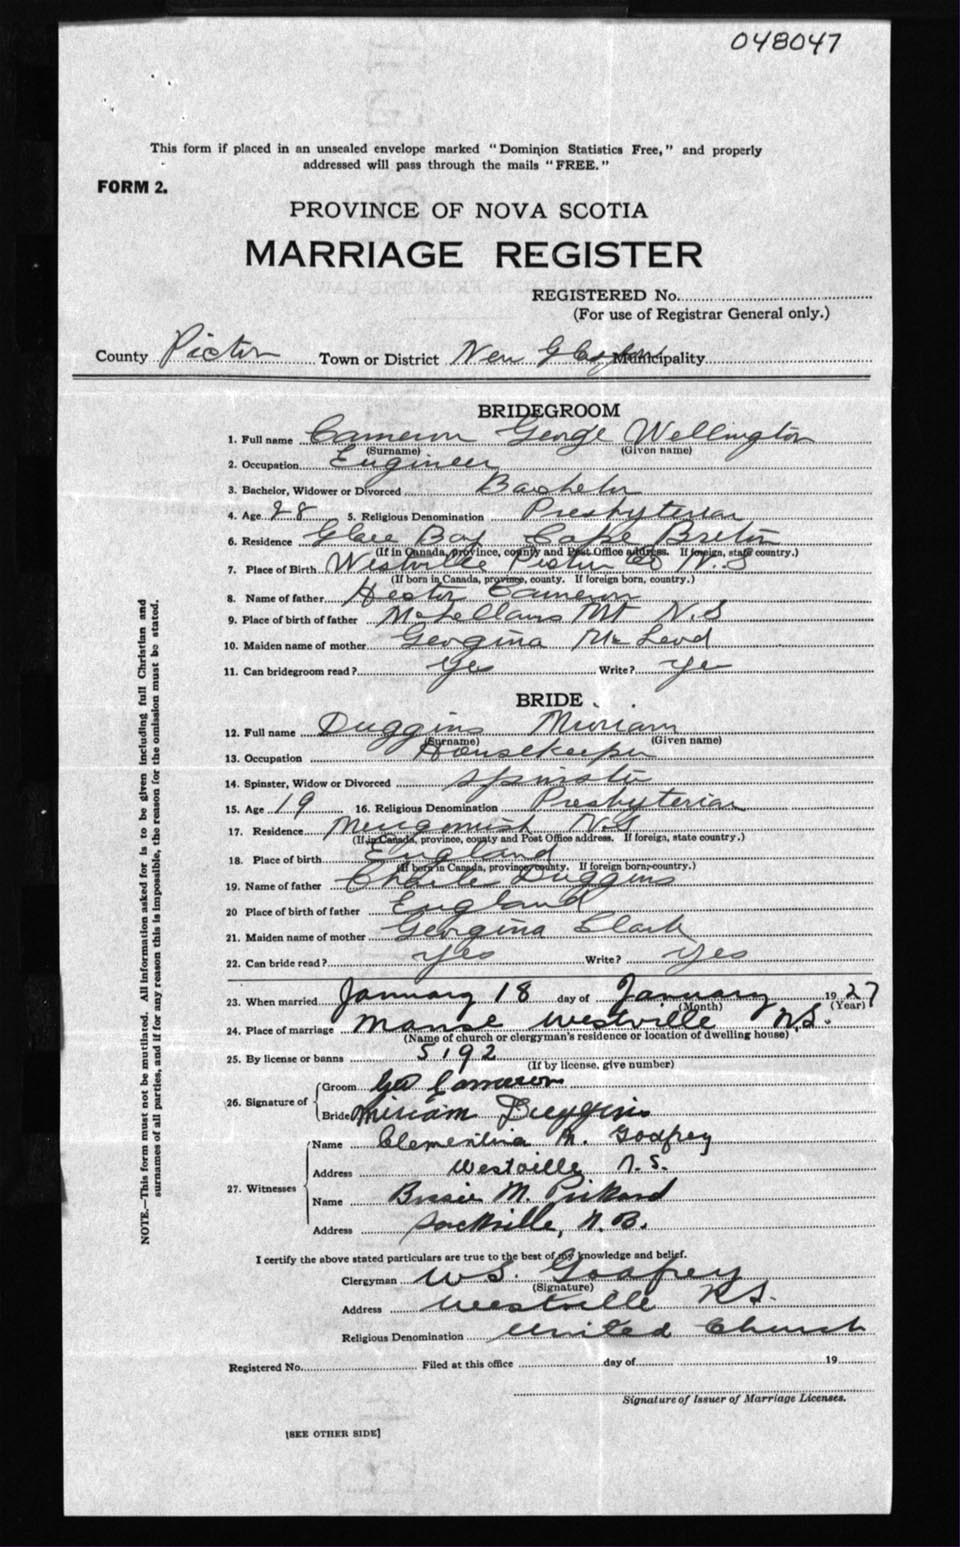 048047
This form if placed in an unsealed envelope marked "Dominion Statistics Free," and properly
addressed will pass through the mails "FREE."
FORM 2.
PROVINCE OF NOVA SCOTIA
MARRIAGE REGISTER
REGISTERED No.
(For use of Registrar General only.)
County Pictou Town or District New Glasgow Municipality
BRIDEGROOM
1. Full name Cameron George Wellington
(Surname) (Given name)
2. Occupation Engineer
3. Bachelor, Widower or Divorced Bachelor
4. Age 28 5. Religious Denomination Presbyterian
6. Residence Glace Bay Cape Breton
(If in Canada, province, county and Post Office address. If foreign, state country.)
7. Place of Birth Westville Pictou Co N.S
(If born in Canada, province, county. If foreign born, country.)
8. Name of father Hector Cameron
9. Place of birth of father McLellans Mt N.S
10. Maiden name of mother Georgina McLeod
11. Can bridegroom read? Yes Write? Yes
BRIDE
12. Full name Duggins Miriam
(Surname) (Given name)
13. Occupation Housekeeper
14. Spinster, Widow or Divorced Spinster
15. Age 19 16. Religious Denomination Presbyterian
17. Residence Merigomish N.S
(If in Canada, province, county and Post Office address. If foreign, state country.)
18. Place of birth England
(If born in Canada, province, county. If foreign born, country.)
19. Name of father Charles Duggins
20 Place of birth of father England
21. Maiden name of mother Georgina Clark
22. Can bride read? Yes Write? Yes
23. When married January 18 day of January 1927
(Month) (Year)
24. Place of marriage Manse Westville N.S.
(Name of church or clergyman's residence or location of dwelling house)
25. By license or banns 5192
(If by license, give number)
26. Signature of Groom Geo Cameron
Bride Miriam Duggins
27. Witnesses Name Clementina M. Godfrey
Address Westville N.S.
Name Bessie M. Pickard
Address Sackville, N.B.
I certify the above stated particulars are true to the best of my knowledge and belief.
Clergyman W.S. Godfrey
(Signature)
Address Westville N.S.
Religious Denomination United Church
Registered No. Filed at this office day of 19
Signature of Issuer of Marriage Licenses.
[SEE OTHER SIDE]
NOTE.—This form must not be mutilated. All information asked for is to be given including full Christian and
surnames of all parties, and if for any reason this is impossible, the reason for the omission must be stated.